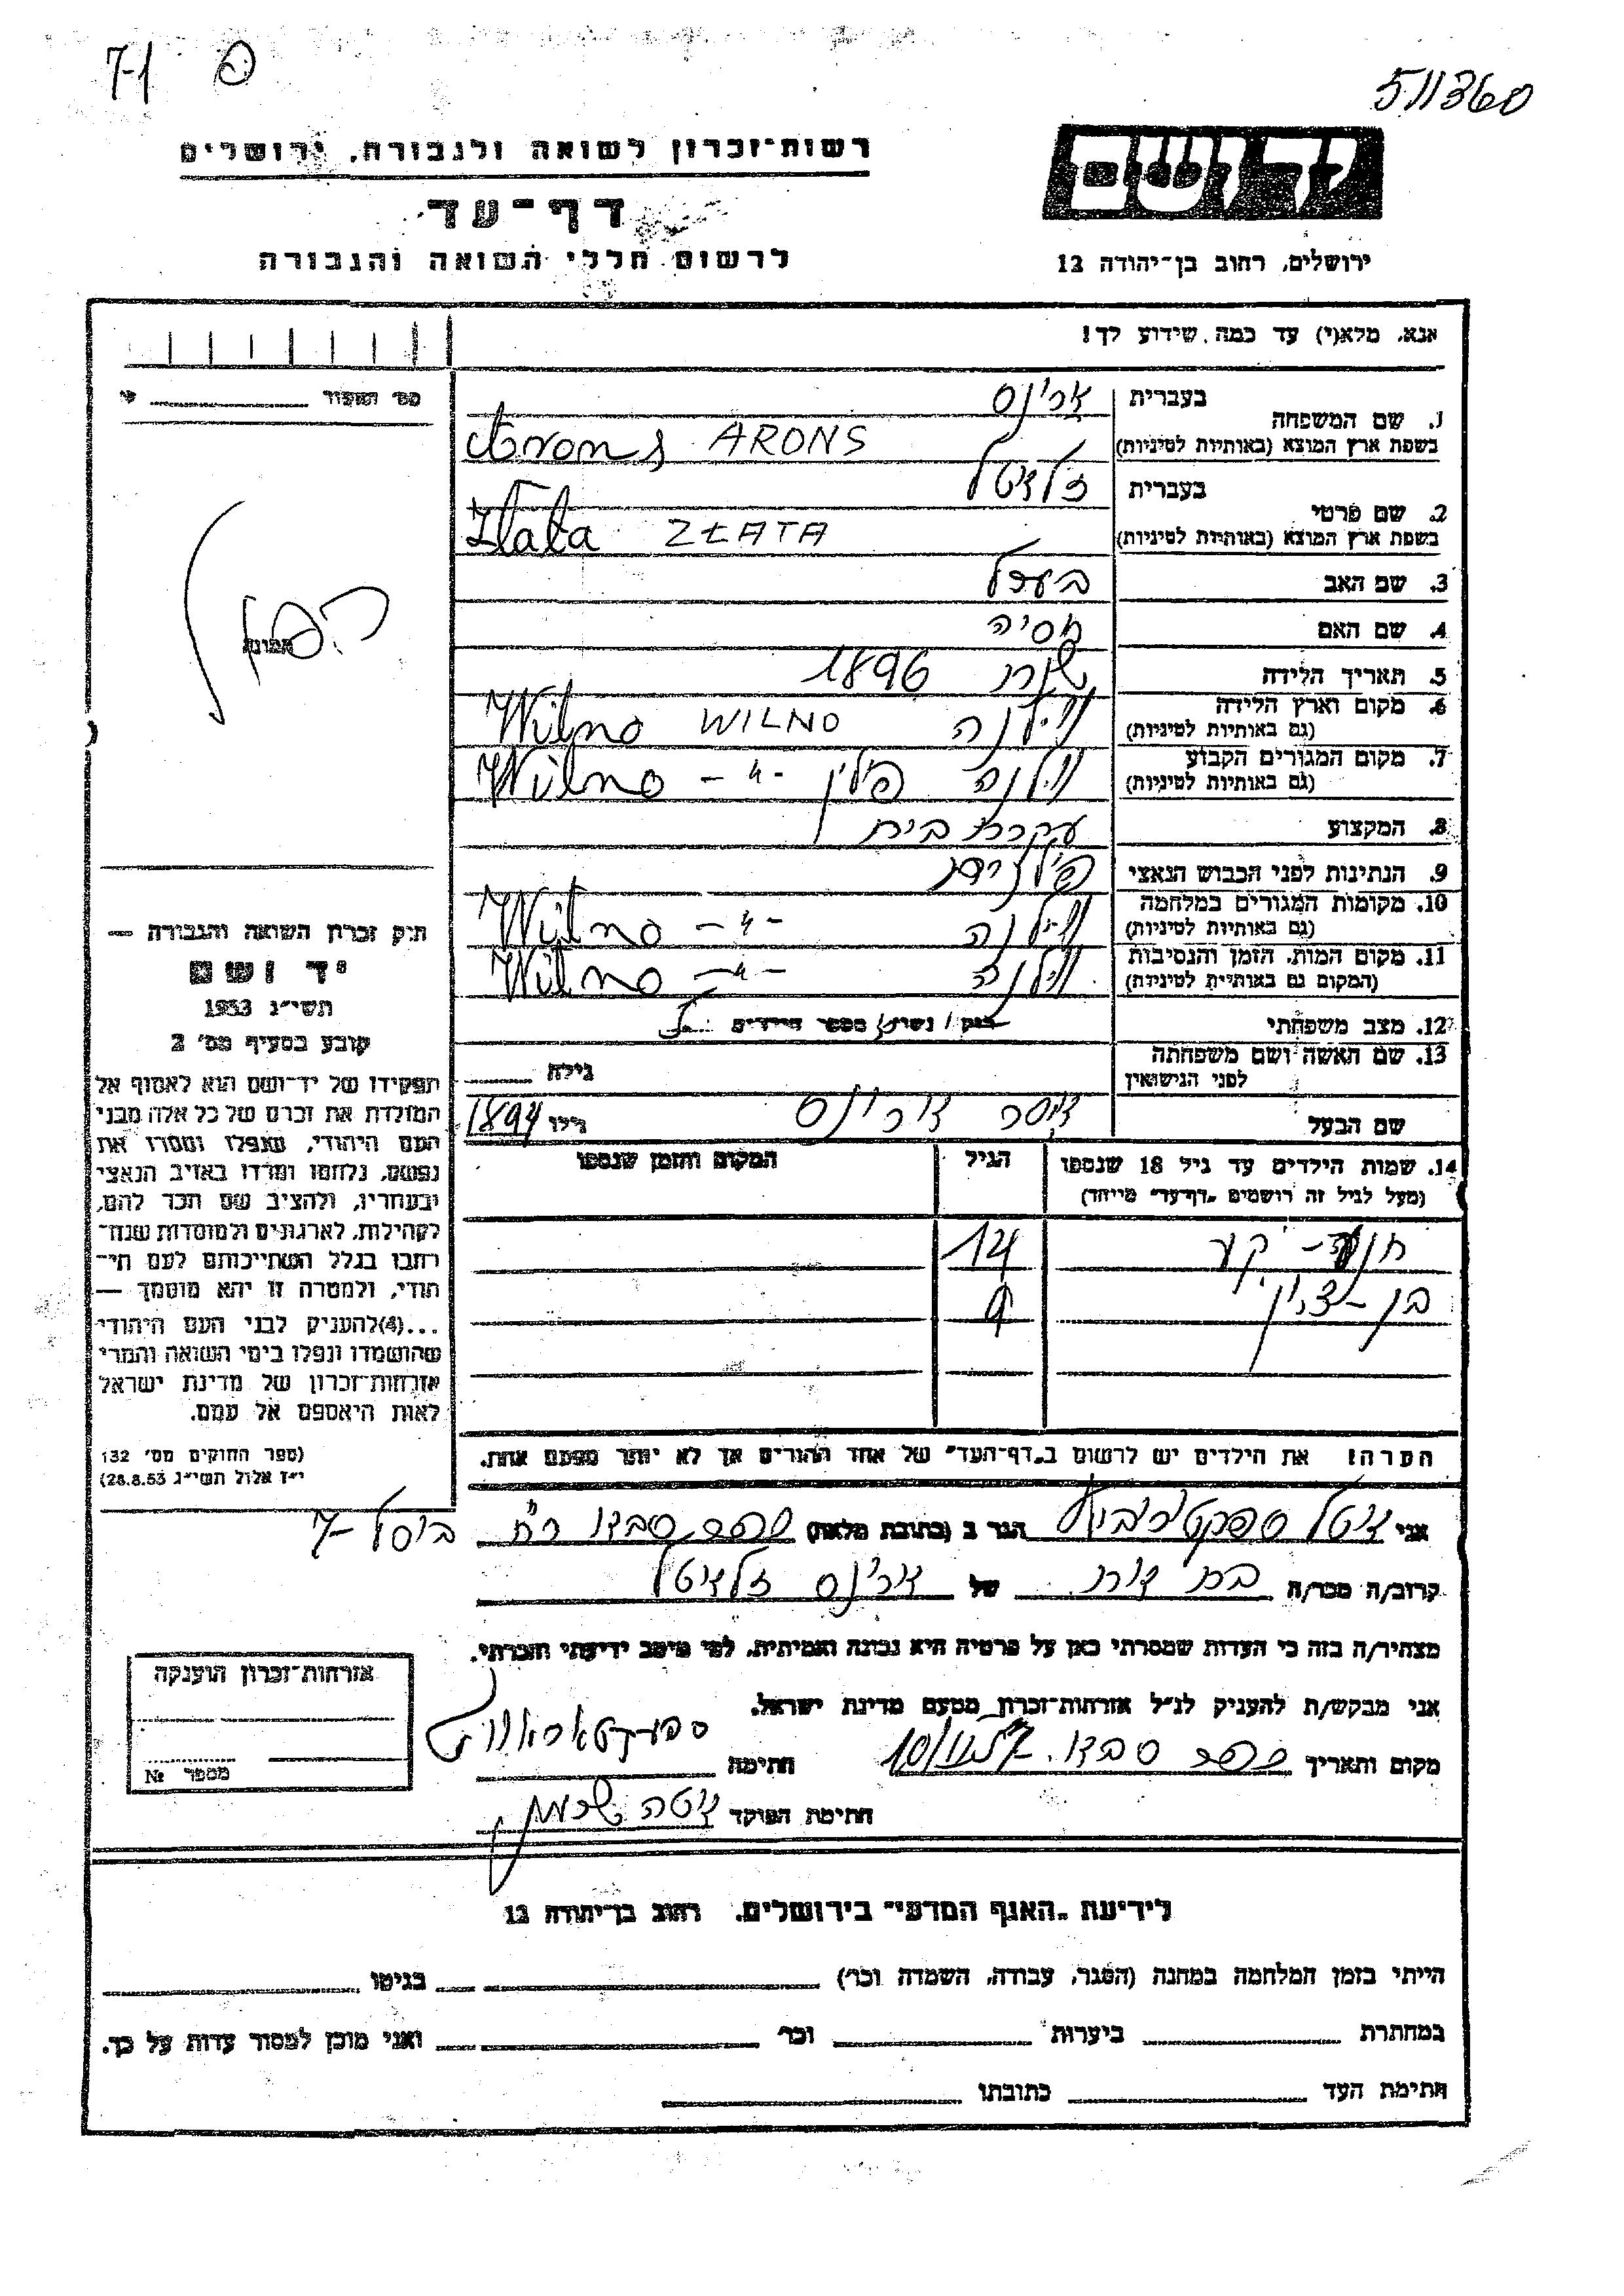 71
511360
רשות־זכרון לשואה ולגבורה, ירושלים
דף־עד
לרשום חללי השואה והגבורה
יד ושם
ירושלים, רחוב בן־יהודה 12
אנא, מלא(י) עד כמה שידוע לך!
1. שם המשפחה בעברית ארונס
בשפת ארץ המוצא (באותיות לטיניות) Arons ARONS
2. שם פרטי בעברית זלאטל
בשפת ארץ המוצא (באותיות לטיניות) Złata ZŁATA
3. שם האב
4. שם האם
5. תאריך הלידה שנת 1896
6. מקום וארץ הלידה (גם באותיות לטיניות) וילנה WILNO Wilno
7. מקום המגורים הקבוע (גם באותיות לטיניות) וילנה פולין -"- Wilno
8. המקצוע עקרת בית
9. הנתינות לפני הכבוש הנאצי פולנית
10. מקומות המגורים במלחמה (גם באותיות לטיניות) וילנה -"- Wilno
11. מקום המות, הזמן והנסיבות (המקום גם באותיות לטיניות) וילנה -"- Wilno
12. מצב משפחתי רווק / נשוי / מספר הילדים
13. שם האשה ושם משפחתה לפני הנישואין גילה
שם הבעל ארונס גילו 1894
14. שמות הילדים עד גיל 18 שנספו
(מעל לגיל זה רושמים "דף־עד" מיוחד)
הגיל
המקום והזמן שנספו
14
בן-ציון 9
הערה! את הילדים יש לרשום ב"דף־העד" של אחד ההורים אך לא יותר מפעם אחת.
מס' תעוד
תמונה
חוק זכרון השואה והגבורה —
יד ושם
תשי״ג 1953
קובע בסעיף מס' 2
תפקידו של יד־ושם הוא לאסוף אל
המולדת את זכרם של כל אלה מבני
העם היהודי, שנפלו ומסרו את
נפשם, נלחמו ומרדו באויב הנאצי
ובעוזריו, ולהציב שם וזכר להם,
לקהילות, לארגונים ולמוסדות שנח־
רבו בגלל השתייכותם לעם הי־
הודי, ולמטרה זו יהא מוסמך —
...(4) להעניק לבני העם היהודי
שהושמדו ונפלו בימי השואה והמרי
אזרחות־זכרון של מדינת ישראל
לאות היאספם אל עמם.
(ספר החוקים מס' 132
י״ז אלול תשי״ג 28.8.53)
אני הגר ב (כתובת מלאה) כפר סבא רח' ביוסל 7
קרוב/ה מכר/ה בת דודה של ארונס זלאטל
מצהיר/ה בזה כי העדות שמסרתי כאן על פרטיה היא נכונה ואמיתית, לפי מיטב ידיעתי והכרתי.
אני מבקש/ת להעניק לנ״ל אזרחות־זכרון מטעם מדינת ישראל.
מקום ותאריך כפר סבא חתימה
חתימת הפוקד
אזרחות־זכרון הוענקה
מספר №
לידיעת "האגף המדעי" בירושלים, רחוב בן־יהודה 12
הייתי בזמן המלחמה במחנה (הסגר, עבודה, השמדה וכו') בגיטו
במחתרת ביערות וכו' ואני מוכן למסור עדות על כך.
חתימת העד כתובתו